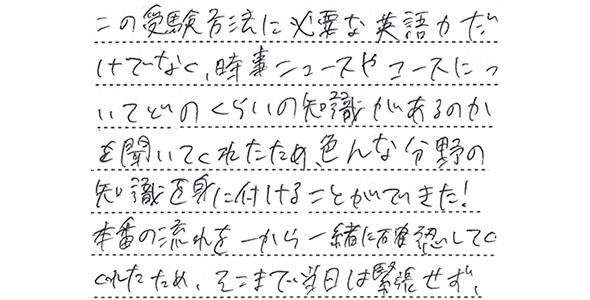 この受験方法に必要な英語力だ
けでなく、時事ニュースやコースにっ
いてどのくらいの知識があるのか
を聞いてくれたため、色んな分野の
知識を身に付けることができました!
本番の流れを一から一緒に確認してく
くれたため、そこまで当日は緊張せず、